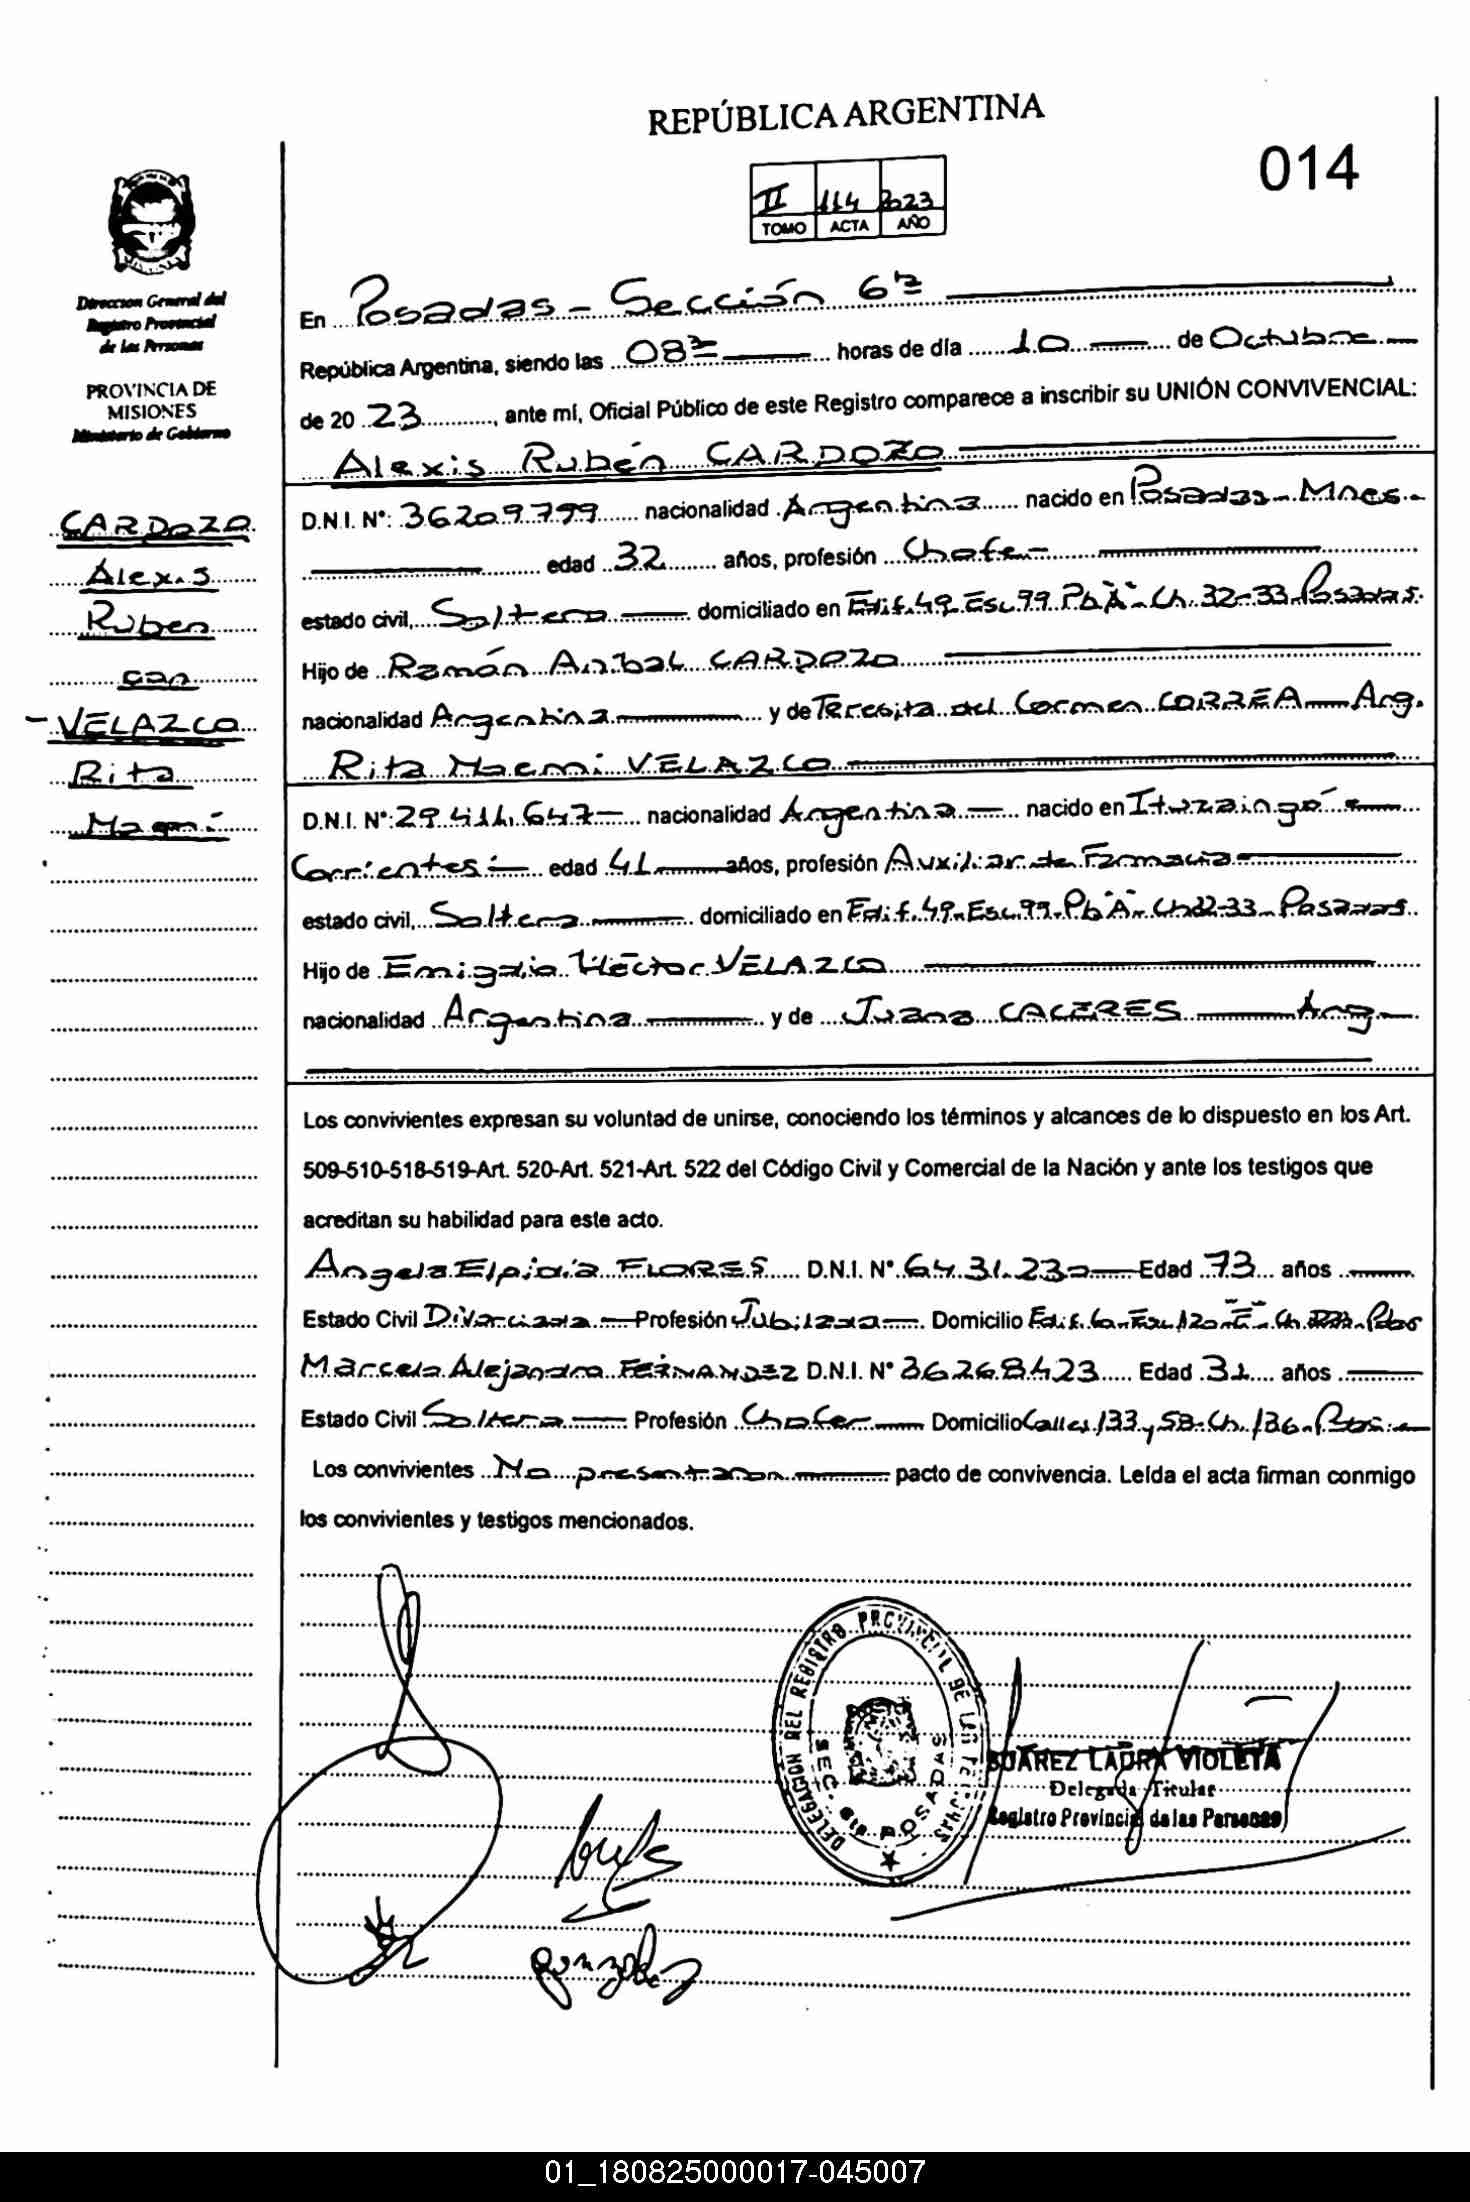 REPÚBLICA ARGENTINA
014
II 114 2023
TOMO ACTA AÑO
Direccion General del
Registro Provincial
de las Personas
PROVINCIA DE
MISIONES
Ministerio de Gobierno
CARDOZO
Alexis
Ruben
con
- VELAZCO
Rita
Noemí
En Posadas - Sección 6ª
República Argentina, siendo las 08ª horas de día 10 de Octubre
de 20 23, ante mí, Oficial Público de este Registro comparece a inscribir su UNIÓN CONVIVENCIAL:
Alexis Rubén CARDOZO
D.N.I. Nº: 36209.799 nacionalidad Argentina nacido en Posadas - Mnes -
edad 32 años, profesión Chofer
estado civil, Soltero domiciliado en Edif. 49 Esc. 99 Pb "A" - Ch. 32-33 Posadas.
Hijo de Ramón Anibal CARDOZO
nacionalidad Argentina y de Teresita del Carmen CORREA - Arg.
Rita Noemi VELAZCO
D.N.I. Nº: 29.411.647 - nacionalidad Argentina - nacido en Ituzaingó -
Corrientes - edad 41 años, profesión Auxiliar de Farmacia
estado civil, Soltera domiciliado en Edif. 49 - Esc. 99 - Pb "A" - Ch 32-33 - Posadas.
Hijo de Emigdio Héctor VELAZCO
nacionalidad Argentina y de Juana CACERES Arg
Los convivientes expresan su voluntad de unirse, conociendo los términos y alcances de lo dispuesto en los Art.
509-510-518-519-Art. 520-Art. 521-Art. 522 del Código Civil y Comercial de la Nación y ante los testigos que
acreditan su habilidad para este acto.
Angela Elpidia FLORES D.N.I. Nº 6431.230 Edad 73 años
Estado Civil Divorciada Profesión Jubilada Domicilio Edif. Esc. 120 "E" - Ch. Pdas
Marcelo Alejandro FERNANDEZ D.N.I. Nº 36268423 Edad 31 años
Estado Civil Soltero Profesión Chofer Domicilio Calles 133 y 58 - Ch. 136 -
Los convivientes No presentaron pacto de convivencia. Leída el acta firman conmigo
los convivientes y testigos mencionados.
DELEGACION DEL REGISTRO PROVINCIAL DE LAS PERSONAS
SEC. 6ta POSADAS
SUÁREZ LAURA VIOLETA
Delegada Titular
Registro Provincial de las Personas
gonzalez
01_180825000017-045007